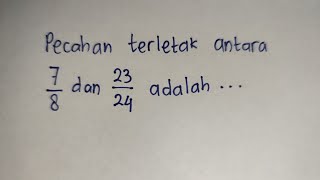 Pecahan terletak antara
7/8 dan 23/24 adalah ...